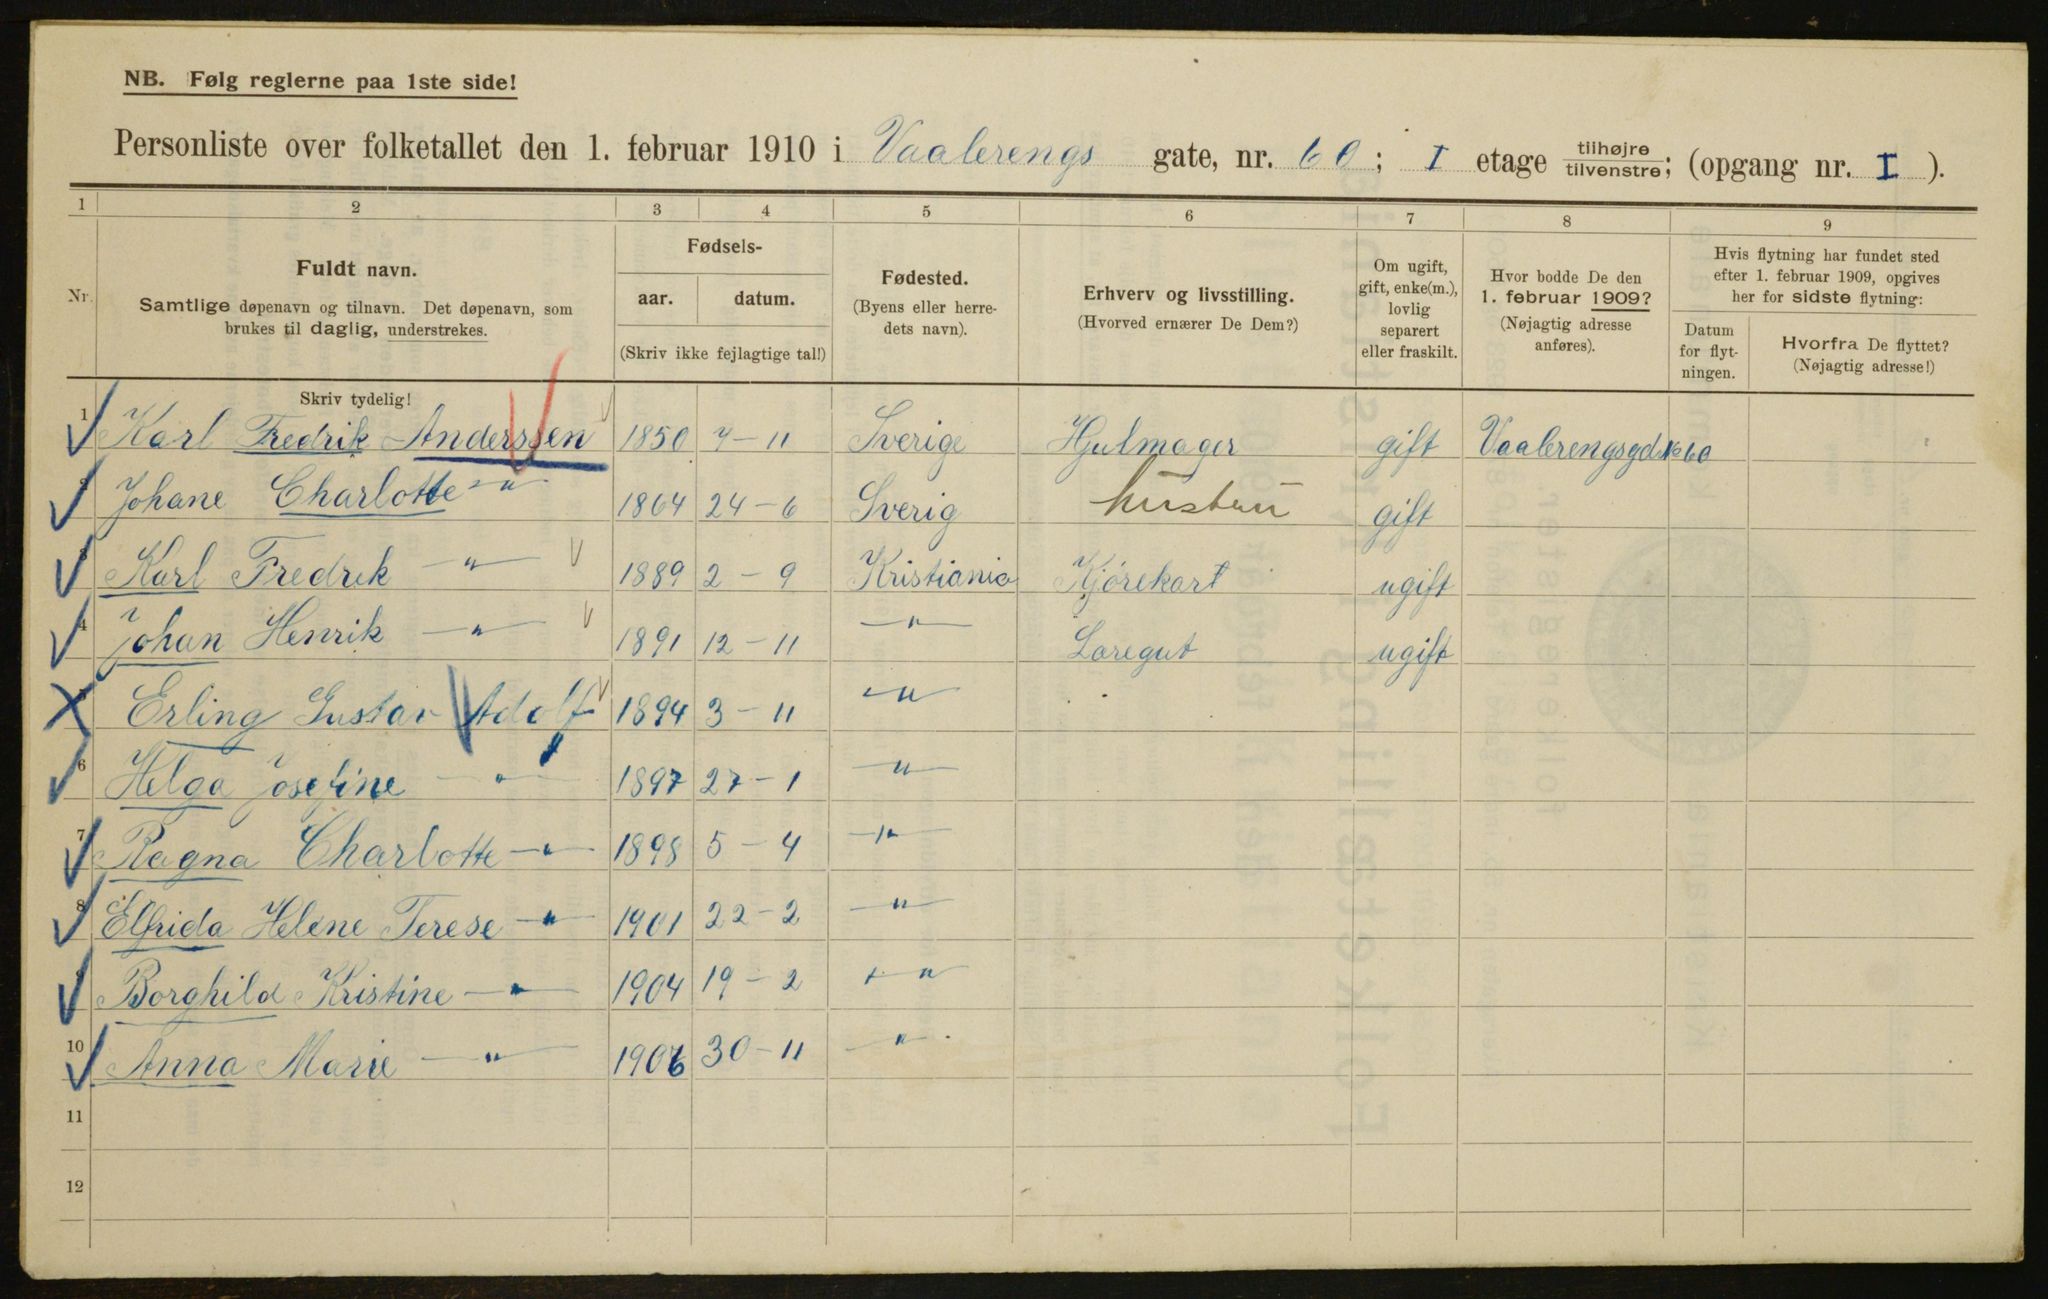 NB. Følg reglerne paa 1ste side!
Personliste over folketallet den 1. februar 1910 i Vaalerengs gate, nr. 60; I etage tilhøjre/tilvenstre; (opgang nr. I ).
1 2 3 4 5 6 7 8 9
Nr.
Fuldt navn.
Samtlige døpenavn og tilnavn. Det døpenavn, som
brukes til daglig, understrekes.
Skriv tydelig!
Fødsels-
aar. datum.
(Skriv ikke fejlagtige tal!)
Fødested.
(Byens eller herre-
dets navn).
Erhverv og livsstilling.
(Hvorved ernærer De Dem?)
Om ugift,
gift, enke(m.),
lovlig
separert
eller fraskilt.
Hvor bodde De den
1. februar 1909?
(Nøjagtig adresse
anføres).
Hvis flytning har fundet sted
efter 1. februar 1909, opgives
her for sidste flytning:
Datum
for flyt-
ningen.
Hvorfra De flyttet?
(Nøjagtig adresse!)
1 Karl Fredrik Anderssen 1850 7-11 Sverige Hjulmager gift Vaalerengsgd No 60
2 Johane Charlotte -"- 1864 24-6 Sverig hustru gift
3 Karl Fredrik -"- 1889 2-9 Kristiania Kjørekart ugift
4 Johan Henrik -"- 1891 12-11 -"- Læregut ugift
5 Erling Gustav Adolf 1894 3-11 -"-
6 Helga Josefine -"- 1897 27-1 -"-
7 Ragna Charlotte -"- 1898 5-4 -"-
8 Elfrida Helene Terese -"- 1901 22-2 -"-
9 Borghild Kristine -"- 1904 19-2 -"-
10 Anna Marie -"- 1906 30-11 -"-
11
12